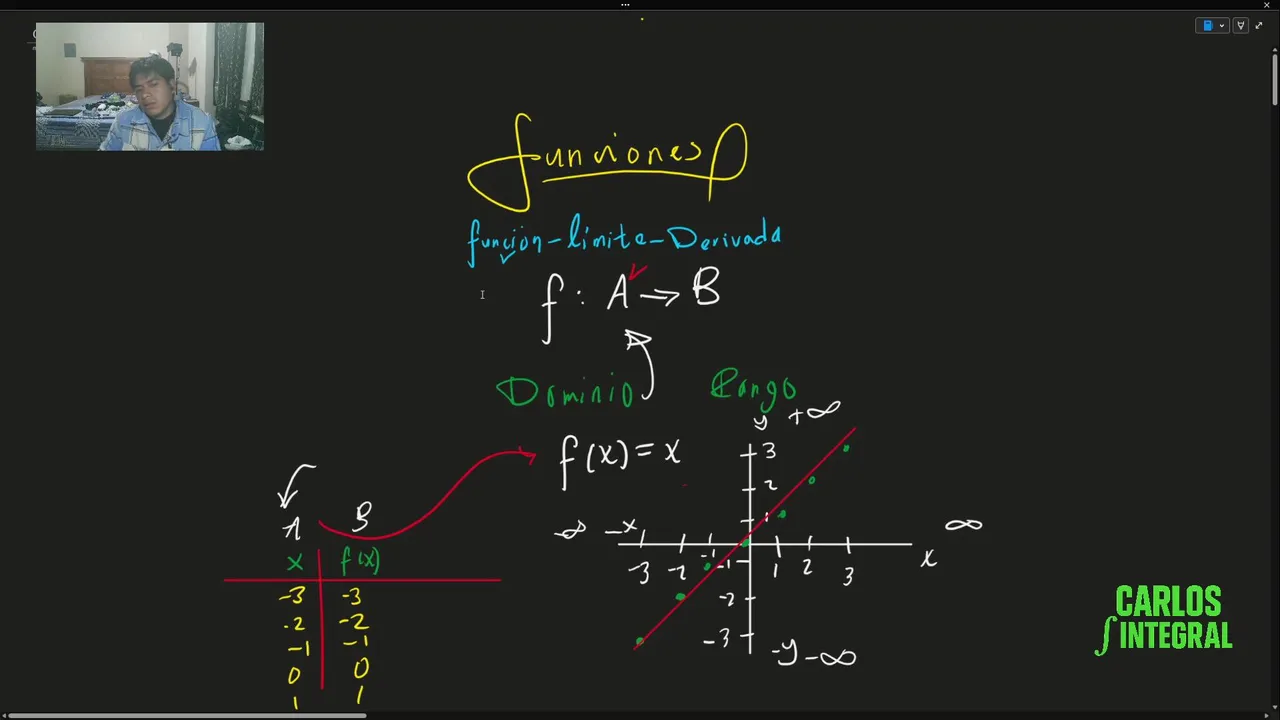 funciones
función-límite-Derivada
f: A → B
Dominio Rango
f(x) = x
y +∞
3
2
1
-∞ -x
-3 -2 -1 1 2 3
x ∞
-1
-2
-3
-y -∞
A B
x f(x)
-3 -3
-2 -2
-1 -1
0 0
1 1
CARLOS
∫INTEGRAL